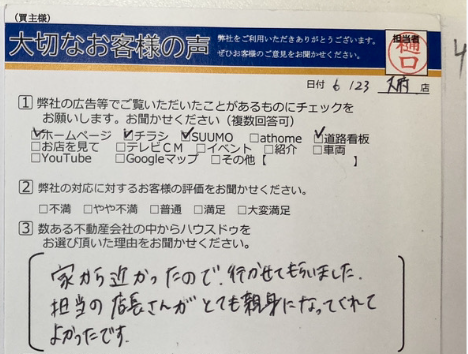 (買主様)
大切なお客様の声 弊社をご利用いただきありがとうございます。
ぜひお客様のご意見をお聞かせください。
担当者
樋口
日付 6 /23 大府 店
1 弊社の広告等でご覧いただいたことがあるものにチェックを
お願いします。お聞かせください（複数回答可）
☑ホームページ ☑チラシ ☑SUUMO □athome ☑道路看板
□お店を見て □テレビCM □イベント □紹介 □車両
□YouTube □Googleマップ □その他【 】
2 弊社の対応に対するお客様の評価をお聞かせください。
□不満 □やや不満 □普通 □満足 □大変満足
3 数ある不動産会社の中からハウスドゥを
お選び頂いた理由をお聞かせください。
家から近かったので、行かせてもらいました。
担当の店長さんがとても親身になってくれて
よかったです。